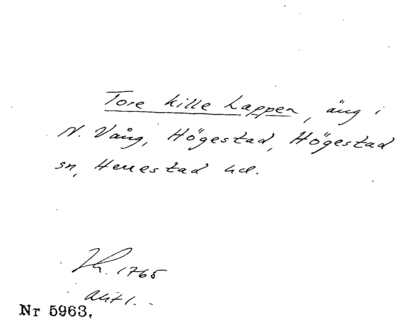 Tore kille Lappen, äng i
N. Vång, Högestad, Högestad
sn, Herrestad hd.
1765
Akt 1.
Nr 5963.